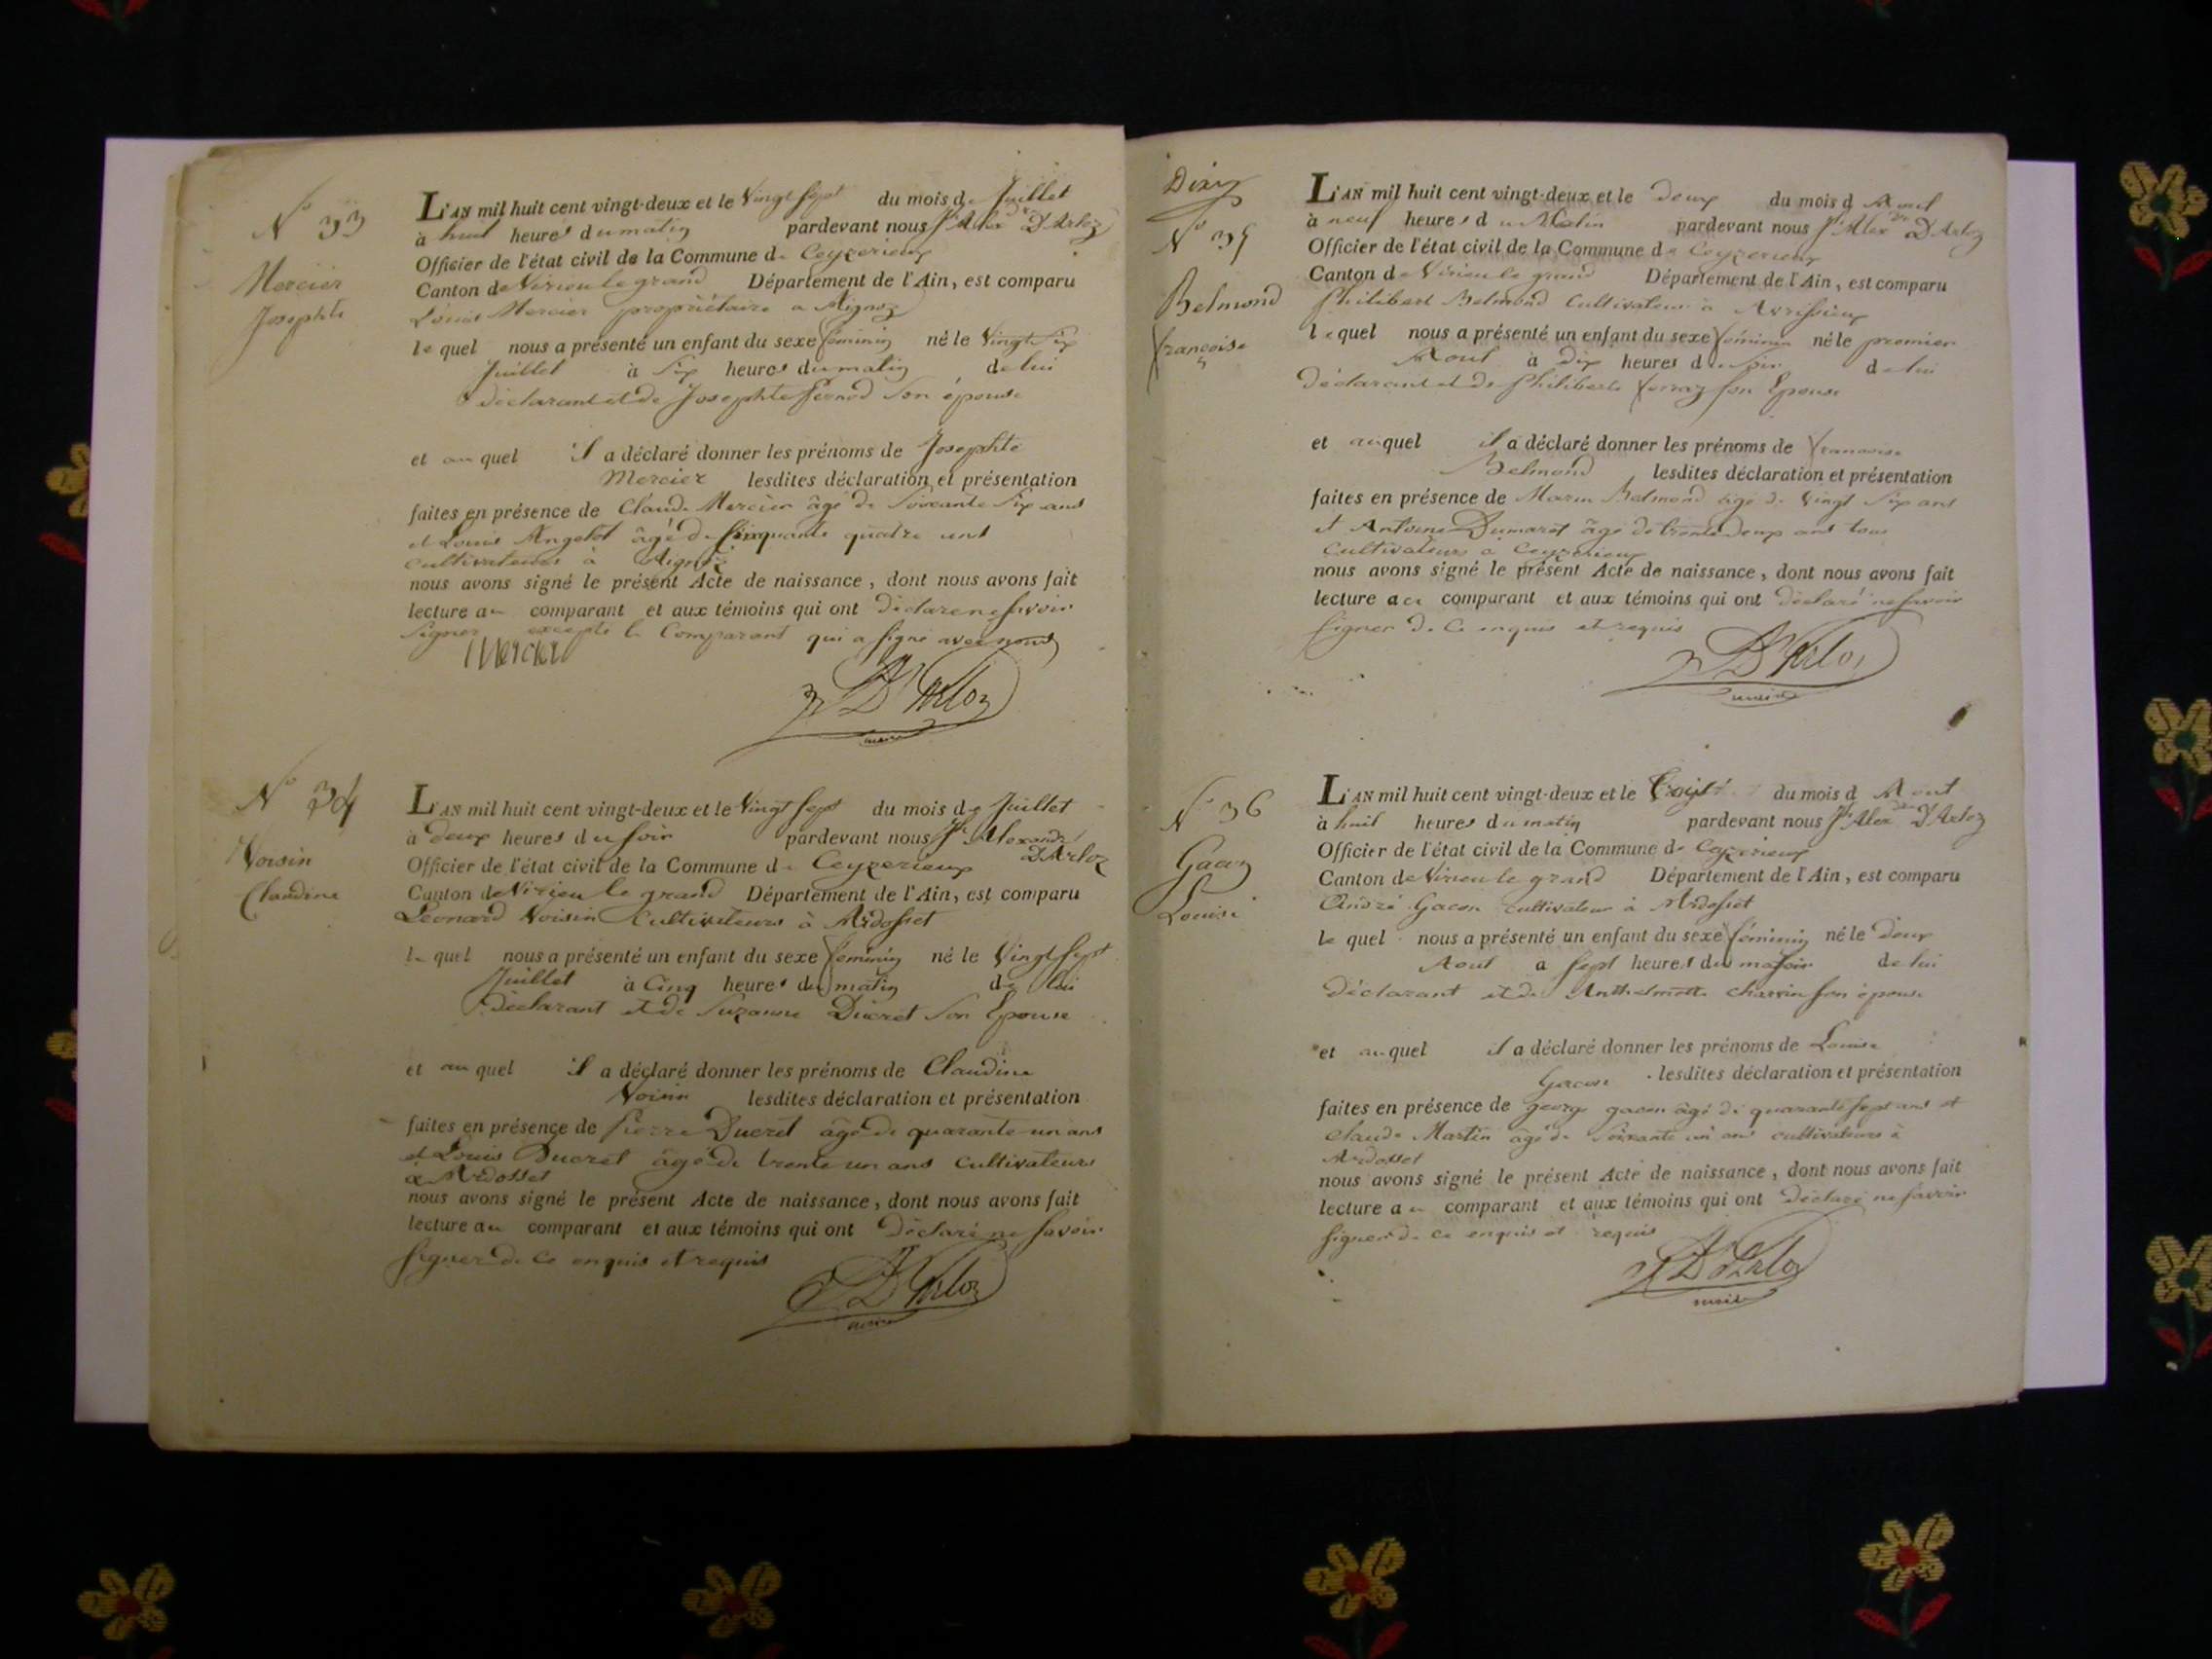 N° 33
Mercier
Josephte
L'AN mil huit cent vingt-deux et le Vingt sept du mois de Juillet
à huit heures du matin pardevant nous Jh Alexdre D'Arloz
Officier de l'état civil de la Commune de Ceyzerieux
Canton de Virieu le grand Département de l'Ain, est comparu
Louis Mercier propriétaire a Aignoz
lequel nous a présenté un enfant du sexe féminin né le Vingt Six
Juillet à Six heures du matin de lui
déclarant et de Josephte son épouse
et au quel il a déclaré donner les prénoms de Josephte
Mercier lesdites déclaration et présentation
faites en présence de Claude Mercier âgé de Soixante Six ans
et Louis Angelot âgé de Cinquante quatre ans
cultivateurs à Aignoz
nous avons signé le présent Acte de naissance, dont nous avons fait
lecture au comparant et aux témoins qui ont déclaré ne savoir
signer excepté le Comparant qui a signé avec nous
Mercier
D'Arloz
maire
N° 34
Voisin
Claudine
L'AN mil huit cent vingt-deux et le Vingt sept du mois de Juillet
à deux heures du soir pardevant nous Jh Alexandre
D'Arloz
Officier de l'état civil de la Commune de Ceyzerieux
Canton de Virieu le grand Département de l'Ain, est comparu
Leonard Voisin Cultivateurs à Ardosset
lequel nous a présenté un enfant du sexe féminin né le Vingt Sept
Juillet à Cinq heures du matin de lui
déclarant et de Suzanne Ducret son Epouse
et au quel il a déclaré donner les prénoms de Claudine
Voisin lesdites déclaration et présentation
faites en présence de Pierre Ducret âgé de quarante un ans
et Louis Ducret âgé de trente un ans cultivateurs
à Ardosset
nous avons signé le présent Acte de naissance, dont nous avons fait
lecture au comparant et aux témoins qui ont déclaré ne savoir
signer de ce enquis et requis
D'Arloz
maire
N° 35
Belmond
françoise
L'AN mil huit cent vingt-deux et le deux du mois d Aout
à neuf heures du Matin pardevant nous Jh Alexdre D'Arloz
Officier de l'état civil de la Commune de Ceyzerieux
Canton de Virieu le grand Département de l'Ain, est comparu
Philibert Belmond Cultivateur à Avrissieux
lequel nous a présenté un enfant du sexe féminin né le premier
Aout à dix heures du soir de lui
déclarant et de Philiberte son Epouse
et auquel il a déclaré donner les prénoms de francoise
Belmond lesdites déclaration et présentation
faites en présence de Marin Belmond âgé de Vingt Six ans
et Antoine Dumaret âgé de trente deux ans tous
Cultivateurs à Ceyzerieux
nous avons signé le présent Acte de naissance, dont nous avons fait
lecture au comparant et aux témoins qui ont déclaré ne savoir
signer de ce enquis et requis
D'Arloz
maire
N° 36
Gacon
Louise
L'AN mil huit cent vingt-deux et le du mois d Aout
à huit heures du matin pardevant nous Jh Alexdre D'Arloz
Officier de l'état civil de la Commune de Ceyzerieux
Canton de Virieu le grand Département de l'Ain, est comparu
André Gacon cultivateur à Ardosset
le quel nous a présenté un enfant du sexe féminin né le deux
Aout a sept heures du soir de lui
déclarant et de Anthelmette Charvin son épouse
et au quel il a déclaré donner les prénoms de Louise
Gacon lesdites déclaration et présentation
faites en présence de george gacon âgé de quarante sept ans et
claude Martin âgé de Soixante un ans cultivateurs à
Ardosset
nous avons signé le présent Acte de naissance, dont nous avons fait
lecture au comparant et aux témoins qui ont déclaré ne savoir
signer de ce enquis et requis
D'Arloz
maire